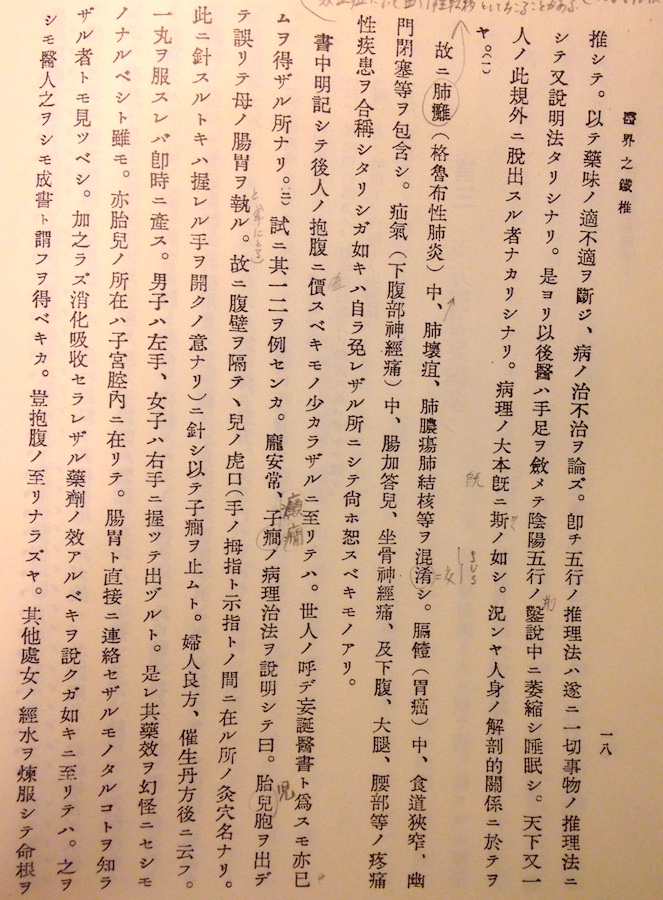 醫界之鐵椎
一八
推シテ。以テ藥味ノ適不適ヲ斷ジ、病ノ治不治ヲ論ズ。卽チ五行ノ推理法ハ遂ニ一切事物ノ推理法ニ
シテ又說明法タリシナリ。是ヨリ以後醫ハ手足ヲ斂メテ陰陽五行ノ鑿說中ニ萎縮シ睡眠シ。天下又一
人ノ此規外ニ脫出スル者ナカリシナリ。病理ノ大本旣ニ斯ノ如シ。況ンヤ人身ノ解剖的關係ニ於テヲ
ヤ。(一)
故ニ肺癰(格魯布性肺炎)中、肺壞疽、肺膿瘍肺結核等ヲ混淆シ。膈饐(胃癌)中、食道狹窄、幽
門閉塞等ヲ包含シ。疝氣(下腹部神經痛)中、腸加答兒、坐骨神經痛、及下腹、大腿、腰部等ノ疼痛
性疾患ヲ合稱シタリシガ如キハ自ラ免レザル所ニシテ尙ホ恕スベキモノアリ。
書中明記シテ後人ノ抱腹ニ價スベキモノ少カラザルニ至リテハ。世人ノ呼デ妄誕醫書ト爲スモ亦已
ムヲ得ザル所ナリ。(二)試ニ其一二ヲ例センカ。龐安常、子癎ノ病理治法ヲ說明シテ曰。胎兒胞ヲ出デ
テ誤リテ母ノ腸胃ヲ執ル。故ニ腹壁ヲ隔テヽ兒ノ虎口(手ノ拇指ト示指トノ間ニ在ル所ノ灸穴名ナリ。
此ニ針スルトキハ握レル手ヲ開クノ意ナリ)ニ針シ以テ子癎ヲ止ムト。婦人良方、催生丹方後ニ云フ。
一丸ヲ服スレバ卽時ニ產ス。男子ハ左手、女子ハ右手ニ握ツテ出ヅルト。是レ其藥效ヲ幻怪ニセシモ
ノナルベシト雖モ。亦胎兒ノ所在ハ子宮腔內ニ在リテ。腸胃ト直接ニ連絡セザルモノタルコトヲ知ラ
ザル者トモ見ツベシ。加之ラズ消化吸收セラレザル藥劑ノ效アルベキヲ說クガ如キニ至リテハ。之ヲ
シモ醫人之ヲシモ成書ト謂フヲ得ベキカ。豈抱腹ノ至リナラズヤ。其他處女ノ經水ヲ煉服シテ命根ヲ